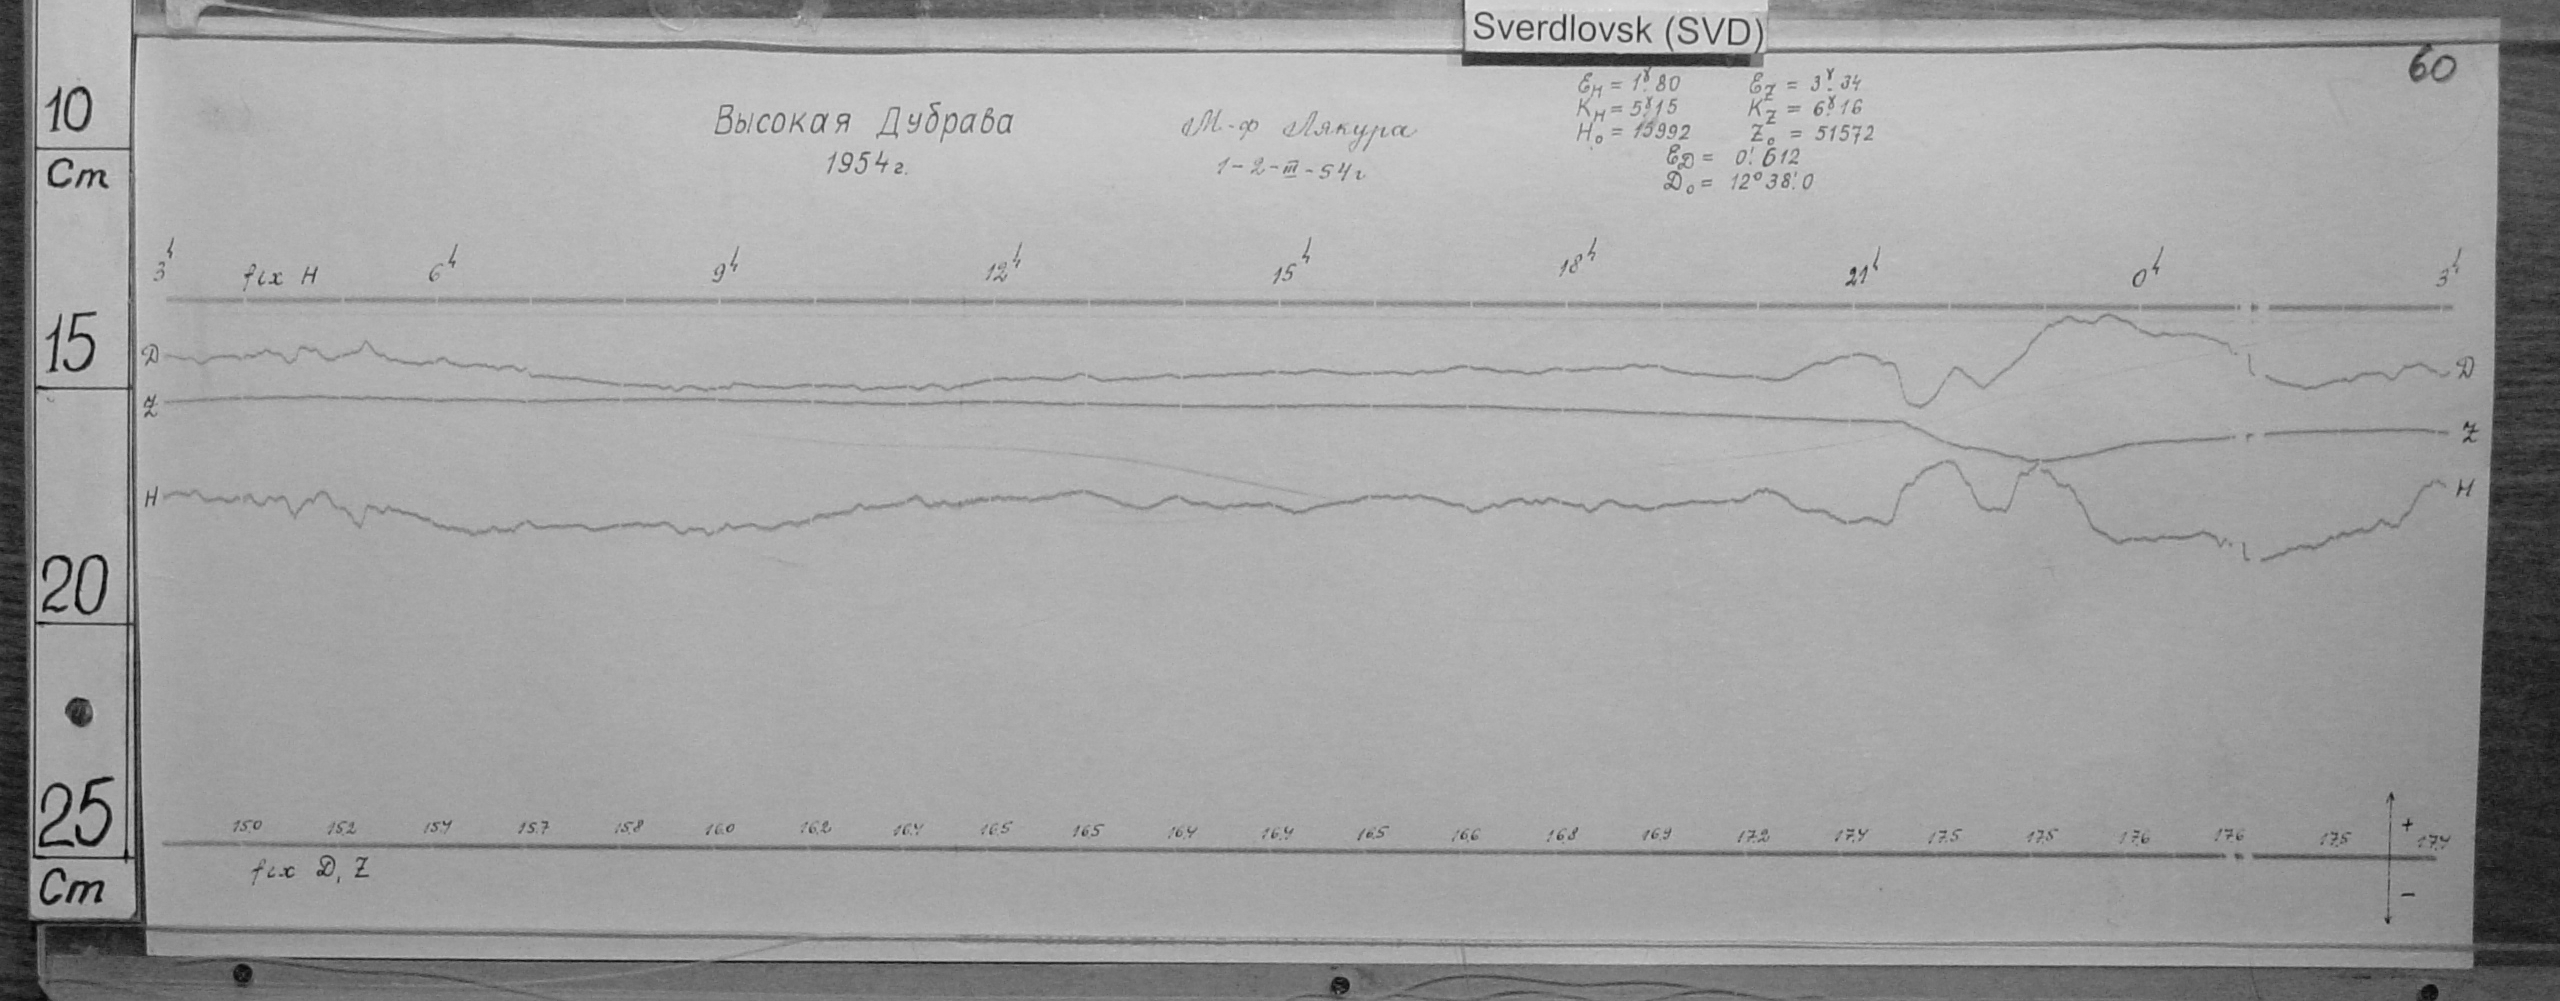 Sverdlovsk (SVD)
60
Высокая Дубрава
1954 г.
М-ф Лякура
1-2-III-54 г
Ɛ_H = 1ˠ.80 Ɛ_Z = 3ˠ.34
K_H = 5ˠ.15 K_Z = 6ˠ.16
H₀ = 15992 Z₀ = 51572
Ɛ_D = 0'.612
D₀ = 12°38'.0
10
Cm
15
20
25
Cm
3ʰ fix H 6ʰ 9ʰ 12ʰ 15ʰ 18ʰ 21ʰ 0ʰ 3ʰ
D D
Z Z
H H
15.0 15.2 15.4 15.7 15.8 16.0 16.2 16.4 16.5 16.5 16.4 16.4 16.5 16.6 16.8 16.9 17.2 17.4 17.5 17.5 17.6 17.6 17.5 17.4
+
fix D, Z
-